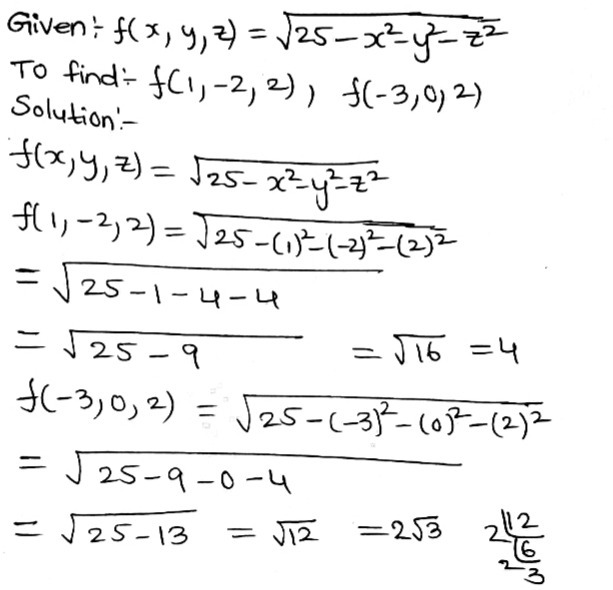 Given:- f(x, y, z) = √25-x²-y²-z²
To find:- f(1,-2,2), f(-3,0,2)
Solution:-
f(x,y,z) = √25-x²-y²-z²
f(1,-2,2) = √25-(1)²-(-2)²-(2)²
= √25-1-4-4
= √25-9 = √16 = 4
f(-3,0,2) = √25-(-3)²-(0)²-(2)²
= √25-9-0-4
= √25-13 = √12 = 2√3 2 12
2 6
3